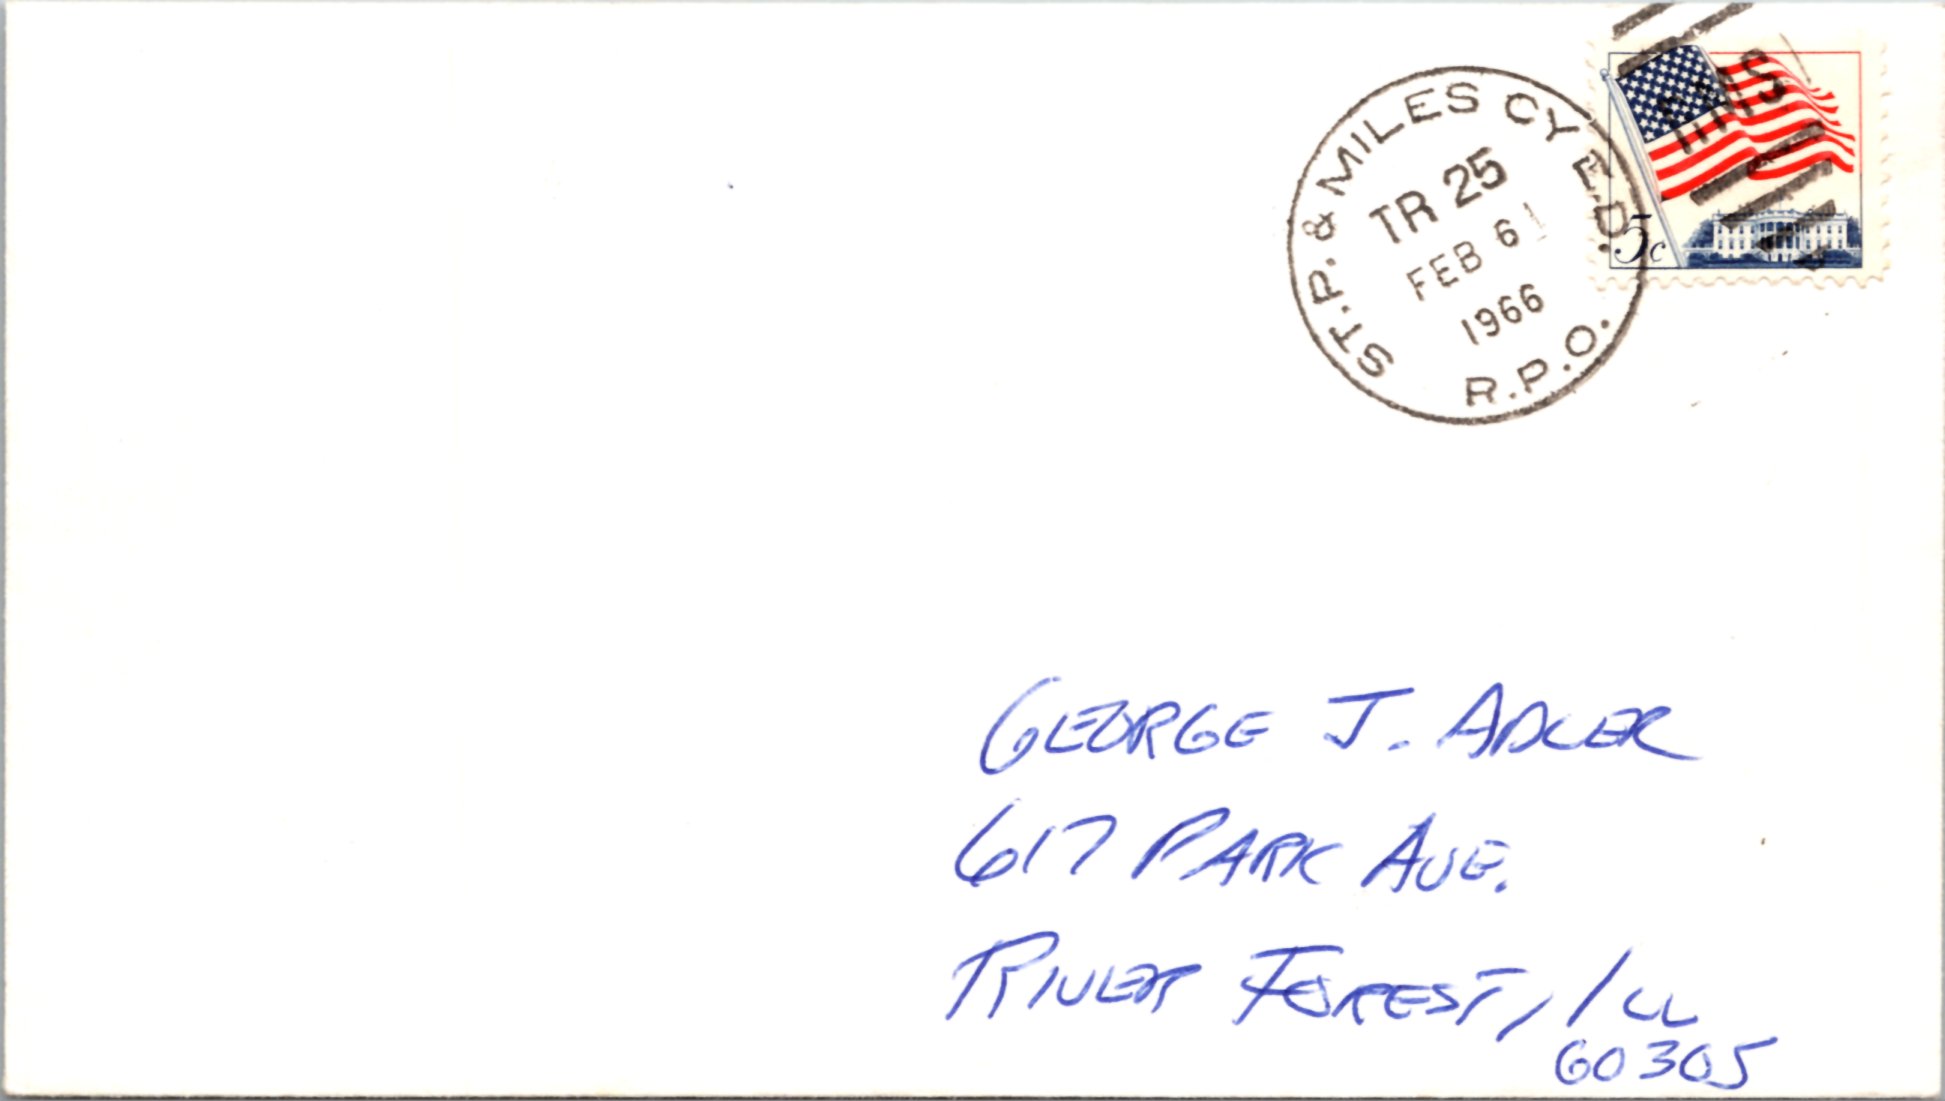 ST. P. & MILES CY E.D.
TR 25
FEB 6
1966
R.P.O.
RMS
5c
GEORGE J. ADLER
617 PARK AVE.
RIVER FOREST, ILL
60305